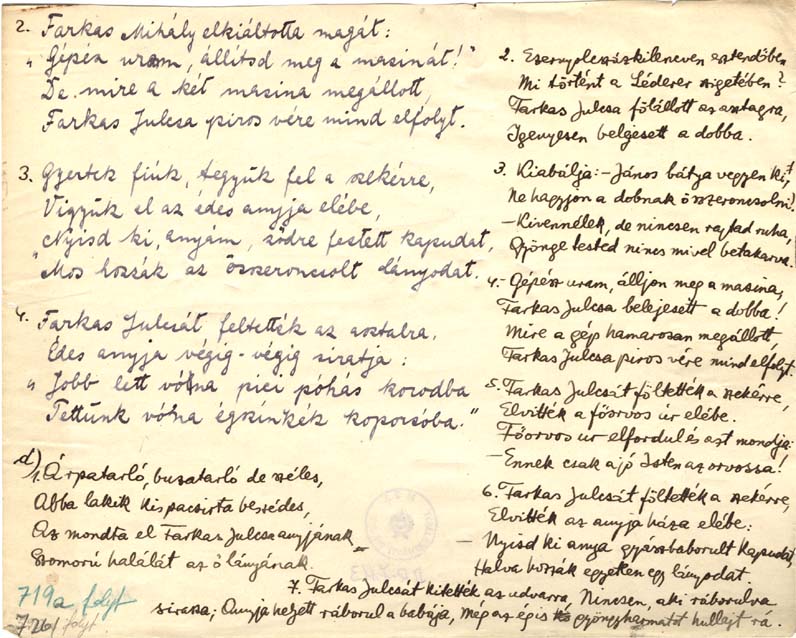 2. Farkas Mihály elkiáltotta magát:
"Gépész uram, állítsd meg a masinát!"
De mire a két masina megállott,
Farkas Julcsa piros vére mind elfolyt.
3. Gyertek fiúk, tegyük fel a szekérre,
Vigyük el az édes anyja elébe,
"Nyisd ki, anyám, zödre festett kapudat,
"Mos hozzák az összeroncsolt lányodat.
4. Farkas Julcsát feltették az asztalra,
Édes anyja végig-végig siratja:
"Jobb lett vóna pici póhás korodba
Tettünk vóna égszínkék koporsóba."
d) 1. Árpatarló, buzatarló de széles,
Abba lakik kis pacsirta beszédes,
Az mondta el Farkas Julcsa anyjának
Szomorú halálát az ő lányának.
719a, folyt
726/ folyt
2. Ezernyolcszázkilencven esztendőben
Mi történt a Léderer szigetében?
Farkas Julcsa fölállott az asztagra,
Igenyesen beléjesett a dobba.
3. Kiabálja: – János bátya vegyen ki,
Ne hagyjon a dobnak összeroncsolni!
– Kivennélek, de nincsen rajtad ruha,
Gyönge tested nincs mivel betakarva.
4. – Gépész uram, álljon meg a masina,
Farkas Julcsa belejesett a dobba!
Mire a gép hamarosan megállott,
Farkas Julcsa piros vére mind elfolyt.
5. Farkas Julcsát föltették a szekérre,
Elvitték a főorvos úr elébe.
Főorvos úr elfordul és azt mondja:
– Ennek csak a jó Isten az orvossa!
6. Farkas Julcsát föltették a szekérre,
Elvitték az anyja háza elébe:
– Nyisd ki anya gyászbaborult kapudat,
Halva hozzák egyetlen egy lányodat.
7. Farkas Julcsát kitették az udvarra, Nincsen, aki ráborulva
sirassa; Anyja helyett ráborul a babája, Még az ég is gyöngyharmatot hullajt rá.